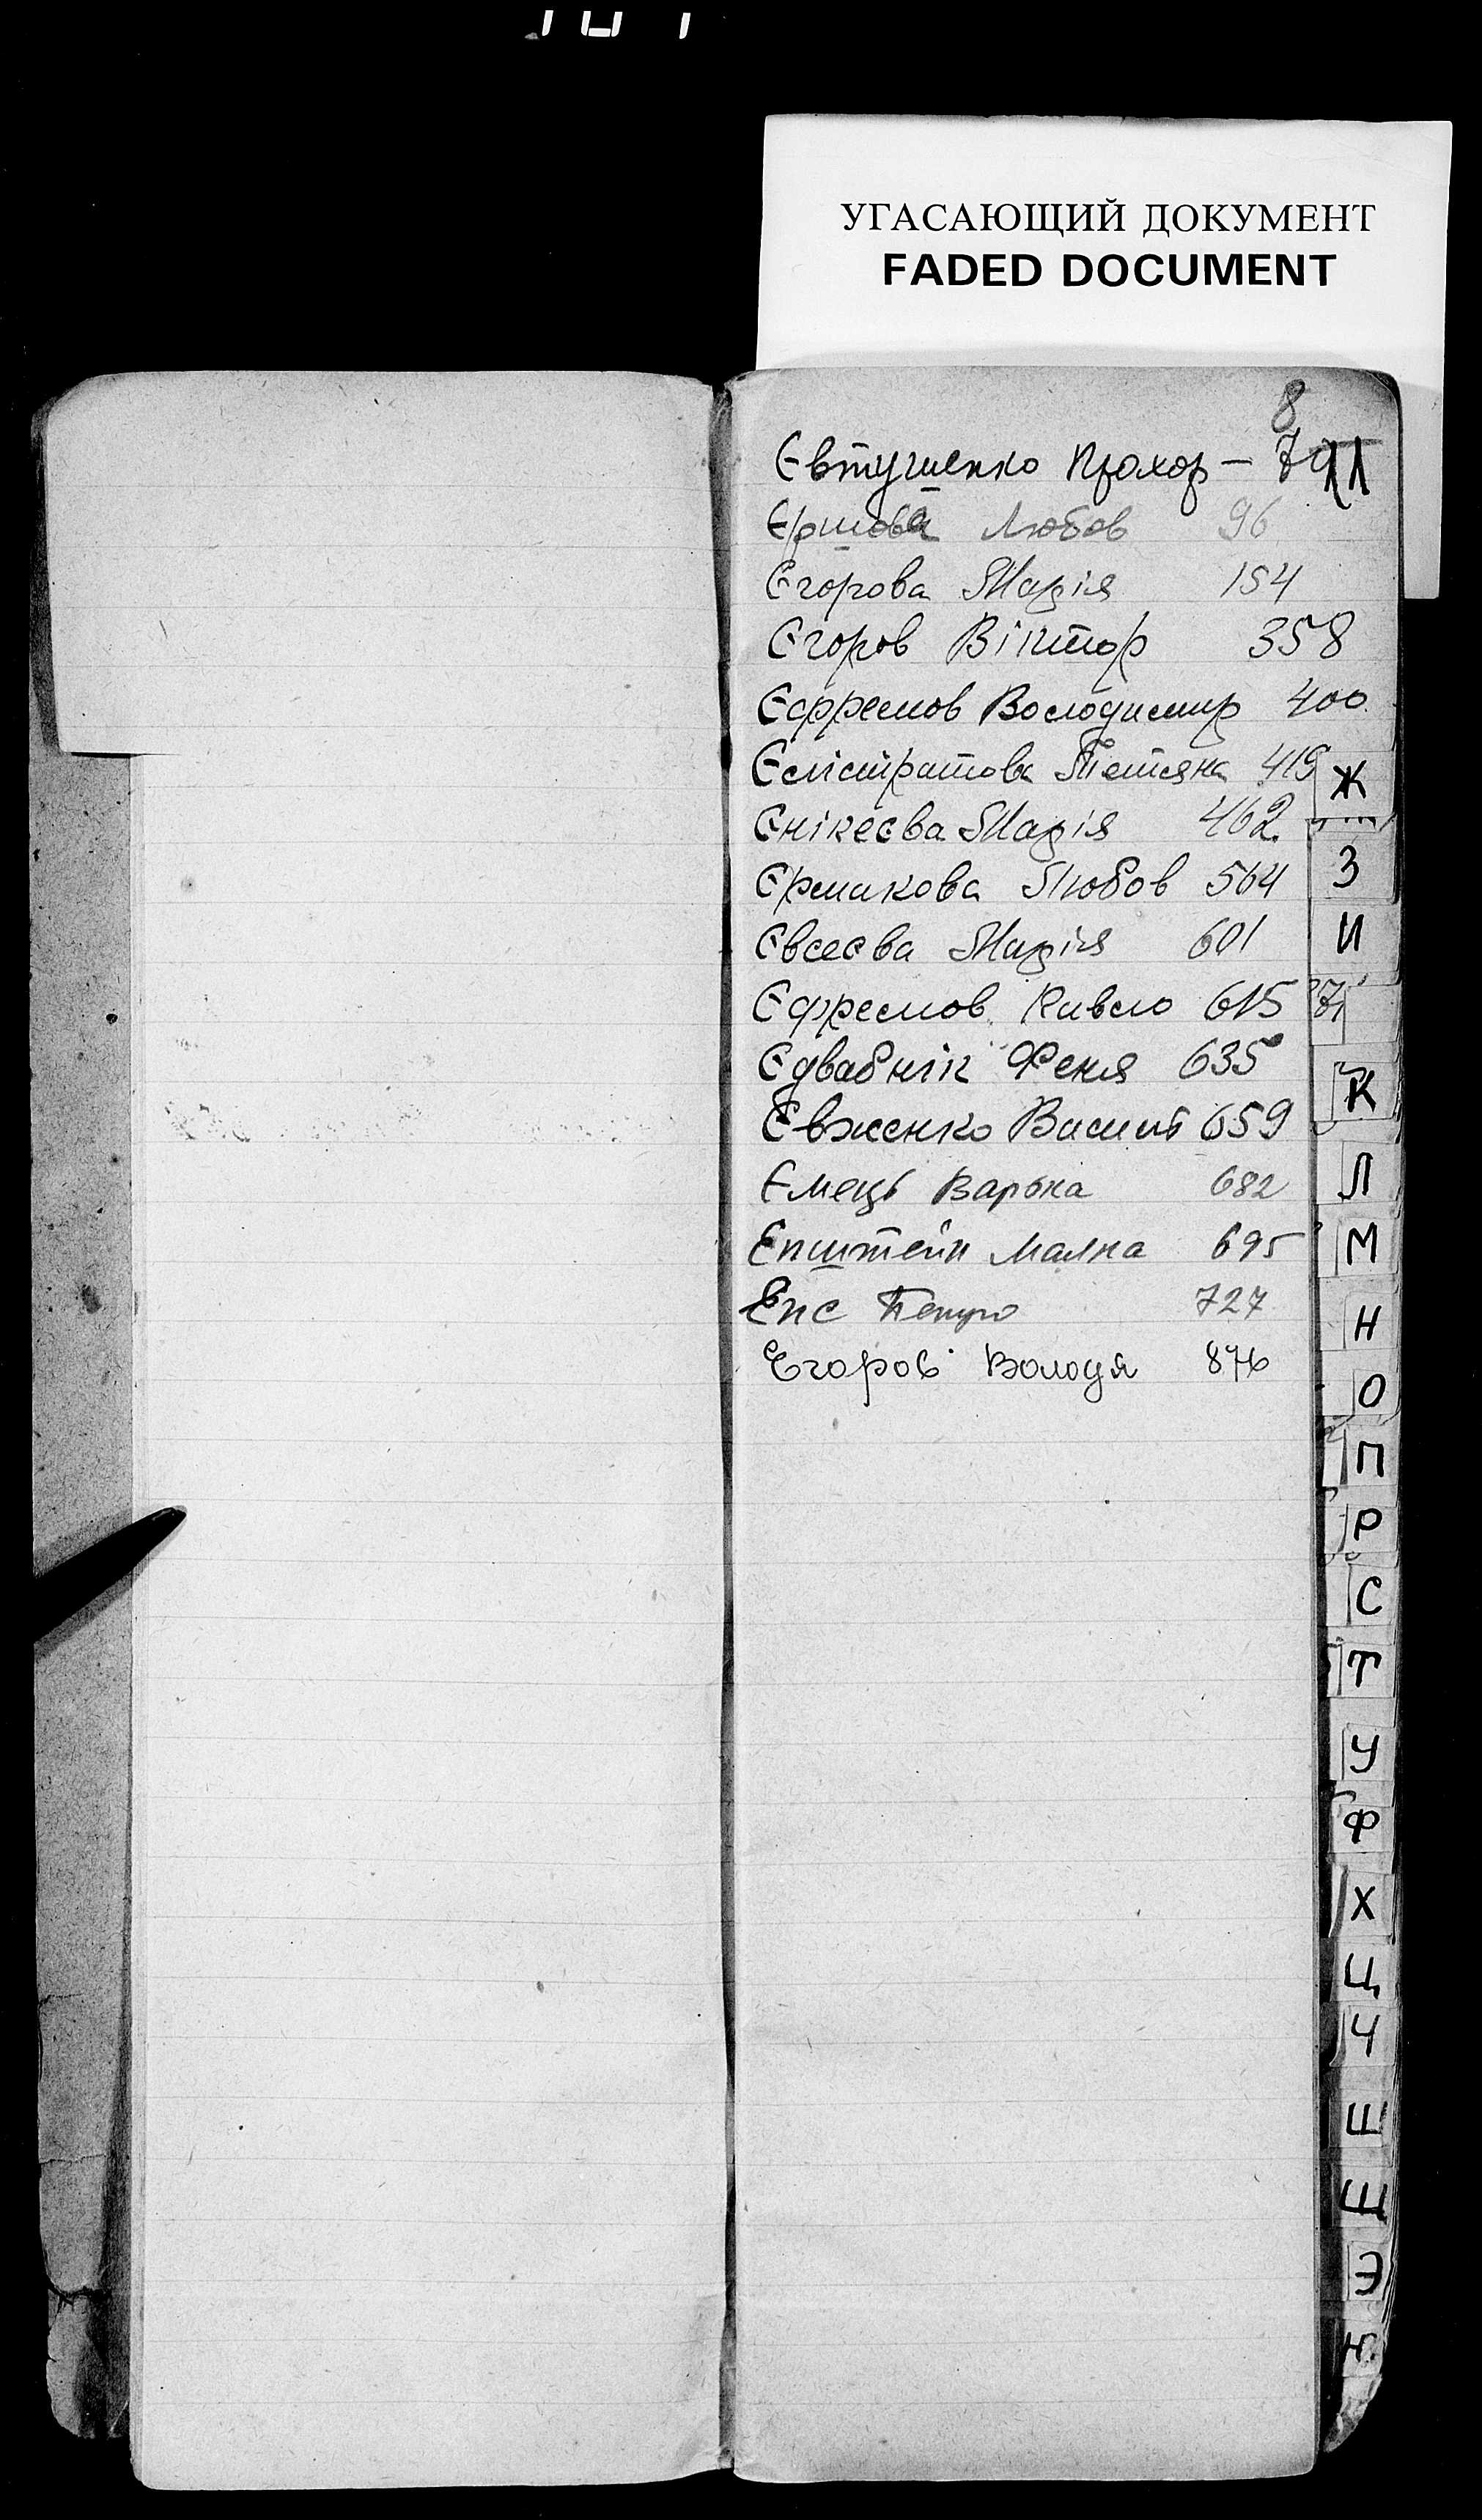 УГАСАЮЩИЙ ДОКУМЕНТ
FADED DOCUMENT
8
Євтушенко Прохор —
Єршова Любов 96
Єгорова Марія 154
Єгоров Віктор 358
Єфремов Володимир 400
Єлістратова Тетяна 419
Єнікеєва Марія 462
Єрмакова Любов 564
Євсеєва Марія 601
Єфремов Павло 615
Єдвабнік Феня 635
Євженко Василь 659
Ємець Варька 682
Епштейн Малка 695
Епс Петро 727
Егоров Володя 876
Ж
З
И
К
Л
М
Н
О
П
Р
С
Т
У
Ф
Х
Ц
Ч
Ш
Щ
Э